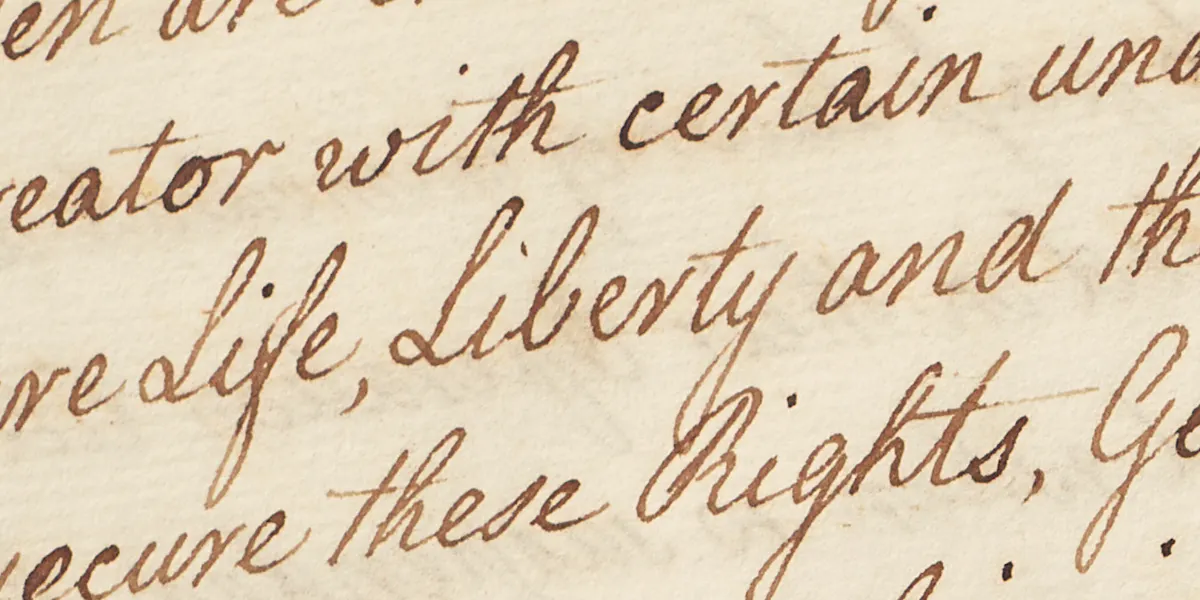 en are
eator with certain una
re Life, Liberty and th
secure these Rights, Go